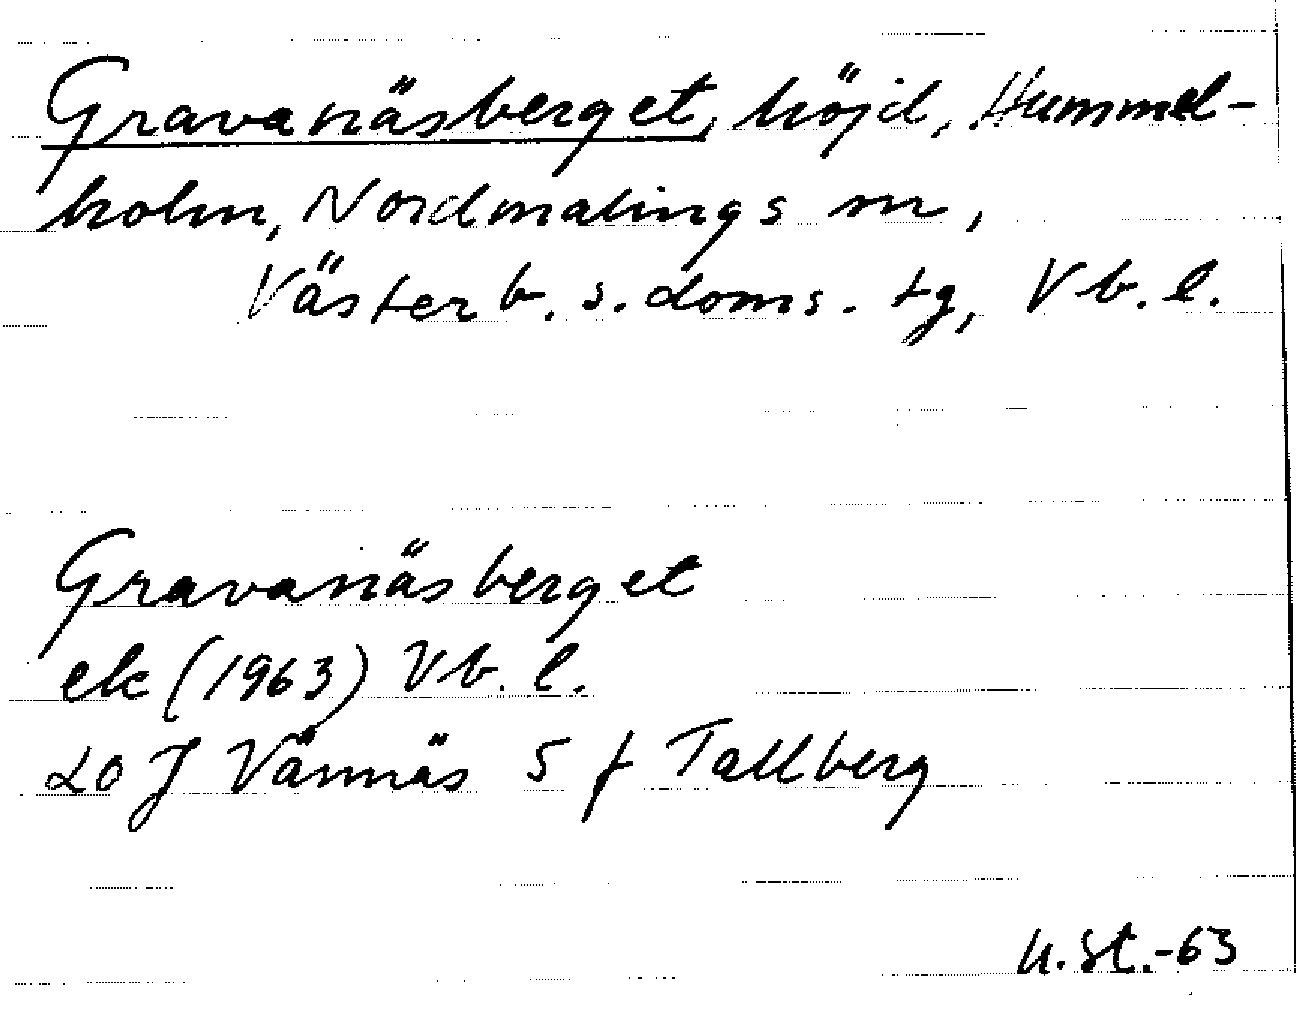 Gravanäsberget, höjd, Hummel-
holm, Nordmalings sn,
Västerb. s. doms. tg, Vb. l.
Gravanäsberget
ek (1963) Vb. l.
20 J Vännäs 5 f Tallberg
U. St. -63